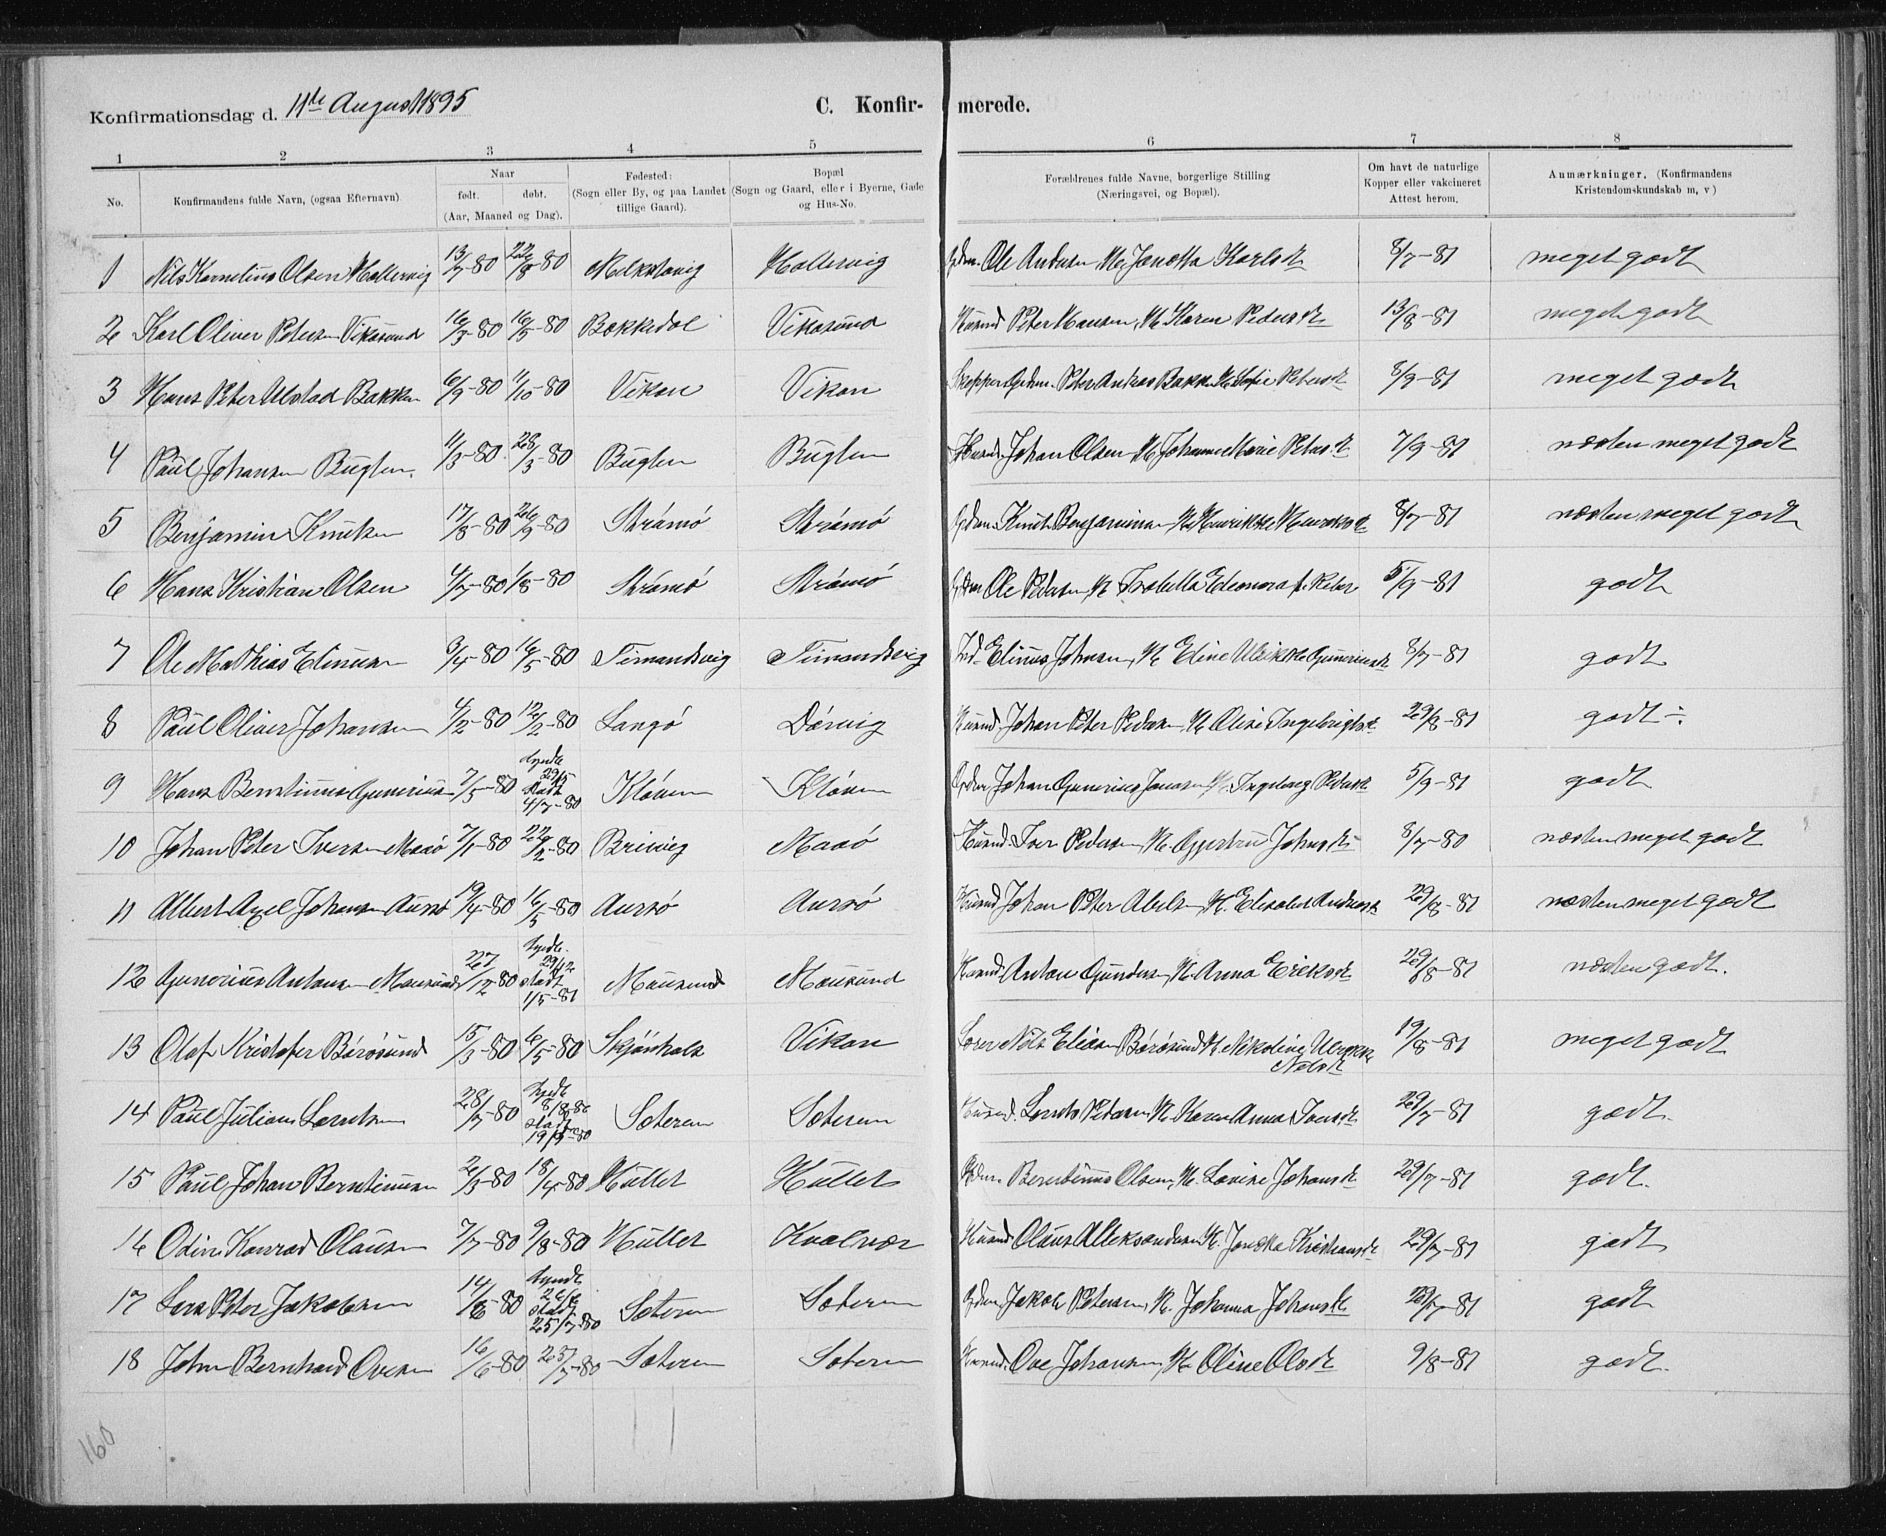 Konfirmationsdag d. 11te August 1895
C. Konfir- merede.
1 2 3 4 5 6 7 8
No. Konfirmandens fulde Navn, (ogsaa Efternavn). Naar født. døbt. (Aar, Maaned og Dag). Fødested: (Sogn eller By, og paa Landet tillige Gaard). Bopæl (Sogn og Gaard, eller i Byerne, Gade og Hus-No. Forældrenes fulde Navne, borgerlige Stilling (Næringsvei, og Bopæl). Om havt de naturlige Kopper eller vakcineret Attest herom. Anmærkninger. (Konfirmandens Kristendomskundskab m, v)
1 Nils Kornelius Olsen Hallervig 13/7-80 22/8-80 Hallervig Gdm. Ole Andersen Janetta Karlsdt 8/7-81 meget godt
2 Karl Oliver Petersen Vikasund 16/3-80 16/5-80 Bekkedal Vikasund Husmd Peter Hansen, H. Karen Pedersdt 13/8-81 meget godt
3 Hans Peter Ulstad Bakken 6/9-80 1/10-80 Vikan Vikan Skipper Gdm. Peter Bakken H. Sofie Petersdt 8/9-81 meget godt
4 Paul Johansen Buglen. 11/3-80 28/3-80 Buglen Buglen Husmd. Johan Olsen H. Johanna Marie Petersdt 7/9-81 næsten meget godt
5 Benjamin Knutsen 17/8-80 26/9-80 Strømø Strømø Gdm. Knut Benjaminsen H. Henrikke Henriksdt 8/7-81 næsten meget godt
6 Hans Kristian Olsen 4/7-80 1/8-80 Strømø Strømø Gdm Ole Pedersen H. Isabella Eleonora f. Peter 5/9-81 godt
7 Ole Mathias Elinusen 3/4-80 16/5-80 Timandsvig Timandsvig Ind Elinus Johnsen, H. Eline Ulrikke Guneriusdt 8/7-81 godt
8 Paul Oliver Johansen 4/2-80 12/2-80 Langø Dørvig Husmd Johan Peter Pedersen H. Oline Ingebrigtsdt 29/8-81 godt ÷
9 Hans Berntinus Guneriussen 7/5-80 hjmdb 29/5 stadf 4/7-80 Kløven Kløven Gdm Johan Gunerius Jonsen H. Ingeborg Pedersdt 5/9-81 godt
10 Johan Peter Iversen Maasø 7/1-80 22/2-80 Brivig Maasø Husmd. Iver Pedersen H. Johnsdt 8/7-80 næsten meget godt
11 Albert Axel Johansen Aursø 19/4-80 16/5-80 Aursø Aursø Husmd Johan Peter Abelsen, H. Elisabet Andersdt 29/8-81 næsten meget godt
12 Gunerius Antonsen Mausund 27/12-80 hjmdb. 29/12 stadf 1/5-81 Mausund Mausund Husmd. Anton Gundersen, H. Anna Eriksdt 29/8-81 næsten godt.
13 Olaf Kristofer Børøsund 15/3-80 6/5-80 Skjønhals Vikan Nils Eliasen Børøsund H. Nikoline Ulrikke Nilsdt 19/8-81 meget godt
14 Paul Julian Lorntsen 28/7-80 hjmdb 8/8-80 stadf 19/9-80 Sæteren Sæteren Husmd. Lornts Petersen H. Karen Anna 29/7-81 godt.
15 Paul Johan Berntinusen 2/3-80 18/4-80 Hullet Hullet Gdm. Berntinus Olsen, H. Lovise Johansdt 29/7-81 godt.
16 Odin Konrad Olausen 7/7-80 9/8-80 Hullet Kvalvær Husmd Olaus Alleksandersen H. Kristiansdt 29/7-81 godt
17 Lars Peter Jakobsen 14/6-80 hjmdb 26/6 stadf 25/7-80 Sæteren Sæteren Gdm. Jakob Petersen, H. Johanna Johansdt 29/7-81 godt
18 John Bernhard Ovesen 16/6-80 25/7-80 Sæteren Sæteren Husmd. Ove Johansen, H. Oline Olsdt 9/8-81 godt.
160